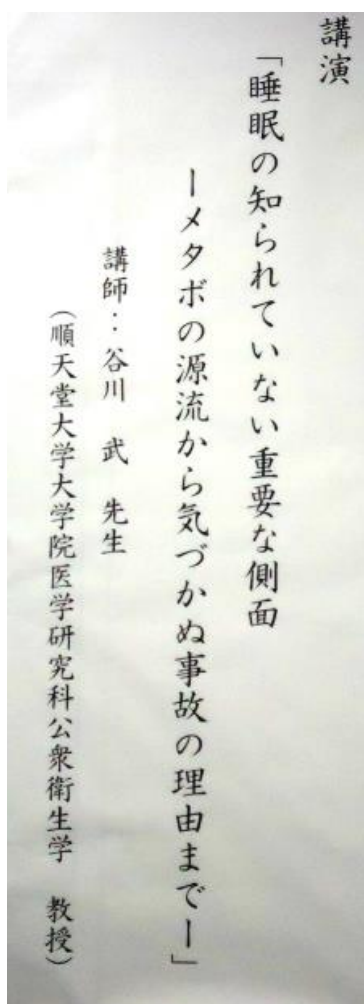 講演
「睡眠の知られていない重要な側面
ーメタボの源流から気づかぬ事故の理由までー」
講師：谷川　武　先生
（順天堂大学大学院医学研究科公衆衛生学　教授）